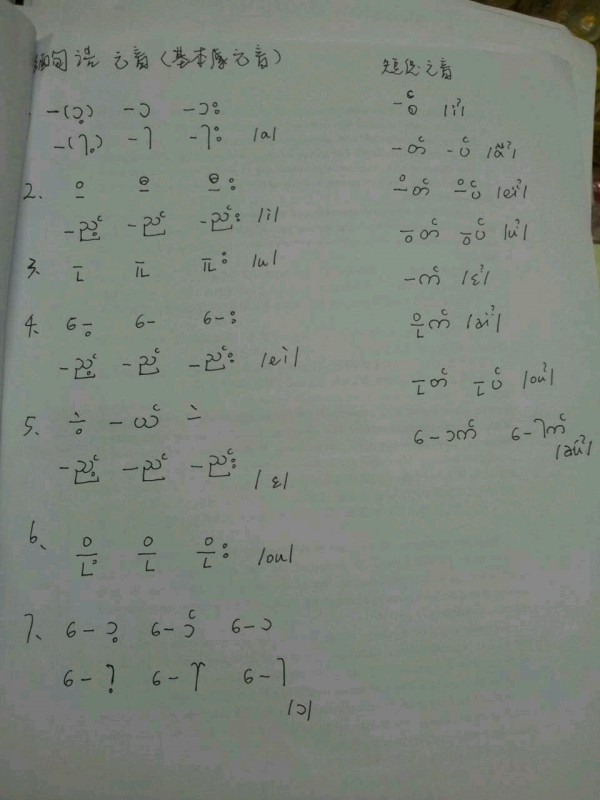 缅甸语 元音（基本原元音）
-(ာ့) -ာ -ား
-(ါ့) -ါ -ါး /a/
2、 -ိ -ီ -ီး
-ည့် -ည် -ည်း /i/
3、 -ု -ူ -ူး /u/
4、 ေ-့ ေ- ေ-း
-ည့် -ည် -ည်း /ei/
5、 -ဲ့ -ယ် -ဲ
-ည့် -ည် -ည်း /ɛ/
6、 -ို့ -ို -ိုး /ou/
7、 ေ-ာ့ ေ-ာ် ေ-ာ
ေ-ါ့ ေ-ါ် ေ-ါ
/ɔ/
短促元音
-စ် /iʔ/
-တ် -ပ် /aʔ/
-ိတ် -ိပ် /eiʔ/
-ွတ် -ွပ် /uʔ/
-က် /ɛʔ/
-ိုက် /aiʔ/
-ုတ် -ုပ် /ouʔ/
ေ-ာက် ေ-ါက်
/auʔ/